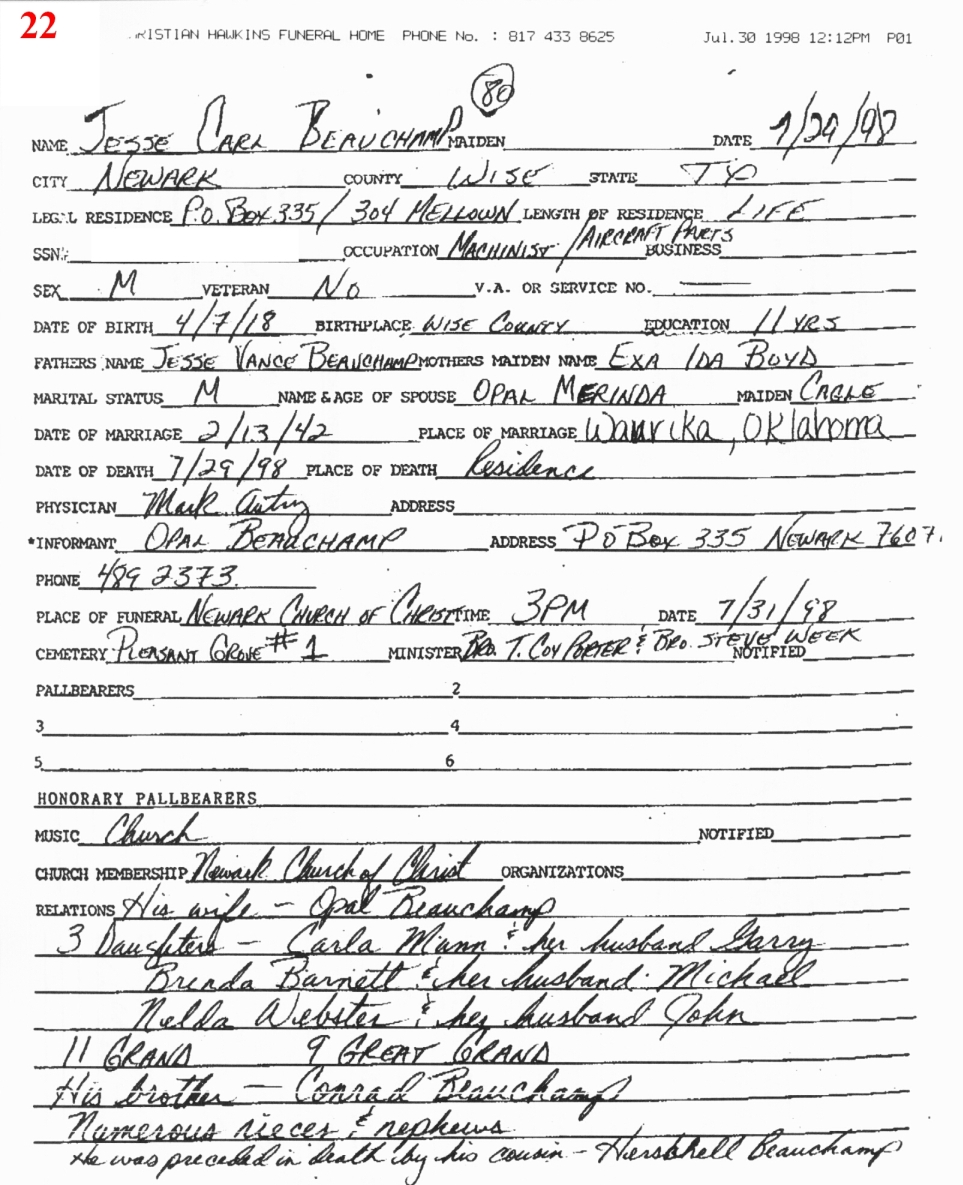 22
RISTIAN HAWKINS FUNERAL HOME PHONE No. : 817 433 8625 Jul.30 1998 12:12PM P01
80
NAME JESSE CARL BEAUCHAMP MAIDEN DATE 7/29/98
CITY NEWARK COUNTY WISE STATE TX
LEGAL RESIDENCE P.O. BOX 335/304 MELLOWN LENGTH OF RESIDENCE LIFE
SSN: OCCUPATION MACHINIST/AIRCRAFT PARTS BUSINESS
SEX M VETERAN NO V.A. OR SERVICE NO. —
DATE OF BIRTH 4/7/18 BIRTHPLACE WISE COUNTY EDUCATION 11 YRS
FATHERS NAME JESSE VANCE BEAUCHAMP MOTHERS MAIDEN NAME EXA IDA BOYD
MARITAL STATUS M NAME & AGE OF SPOUSE OPAL MERINDA MAIDEN CAGLE
DATE OF MARRIAGE 2/13/42 PLACE OF MARRIAGE Waurika, Oklahoma
DATE OF DEATH 7/29/98 PLACE OF DEATH Residence
PHYSICIAN Mark Autry ADDRESS
*INFORMANT OPAL BEAUCHAMP ADDRESS PO BOX 335 NEWARK 7607
PHONE 489 2373
PLACE OF FUNERAL NEWARK CHURCH OF CHRIST TIME 3PM DATE 7/31/98
CEMETERY PLEASANT GROVE #1 MINISTER BRO. T. COY PORTER & BRO. STEVE WEEK NOTIFIED
PALLBEARERS 2
3 4
5 6
HONORARY PALLBEARERS
MUSIC Church NOTIFIED
CHURCH MEMBERSHIP Newark Church of Christ ORGANIZATIONS
RELATIONS His wife - Opal Beauchamp
3 Daughters - Carla Mann & her husband Garry
Brenda Barnett & her husband Michael
Nelda Webster & her husband John
11 GRAND 9 GREAT GRAND
His brother - Conrad Beauchamp
Numerous nieces & nephews
He was preceded in death by his cousin - Hershhell Beauchamp